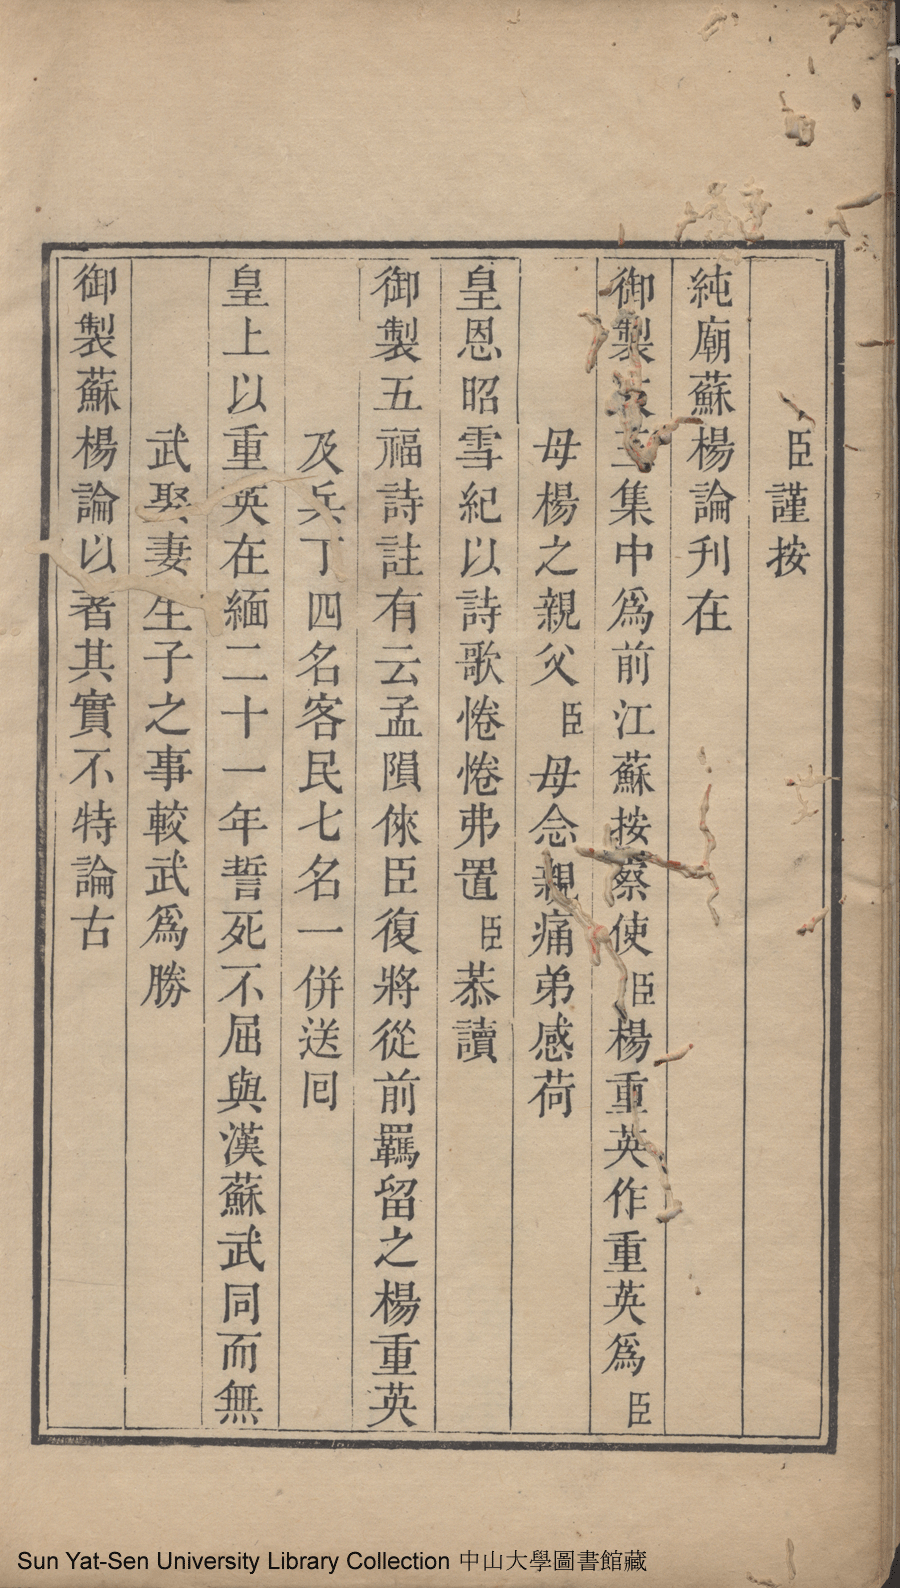 臣謹按
純廟蘇楊論刊在
御製文三集中爲前江蘇按察使臣楊重英作重英爲臣
母楊之親父臣母念親痛弟感荷
皇恩昭雪紀以詩歌惓惓弗置臣恭讀
御製五福詩註有云孟隕倈臣復將從前羈留之楊重英
及兵丁四名客民七名一併送囘
皇上以重英在緬二十一年誓死不屈與漢蘇武同而無
武娶妻生子之事較武爲勝
御製蘇楊論以著其實不特論古
Sun Yat-Sen University Library Collection 中山大學圖書館藏